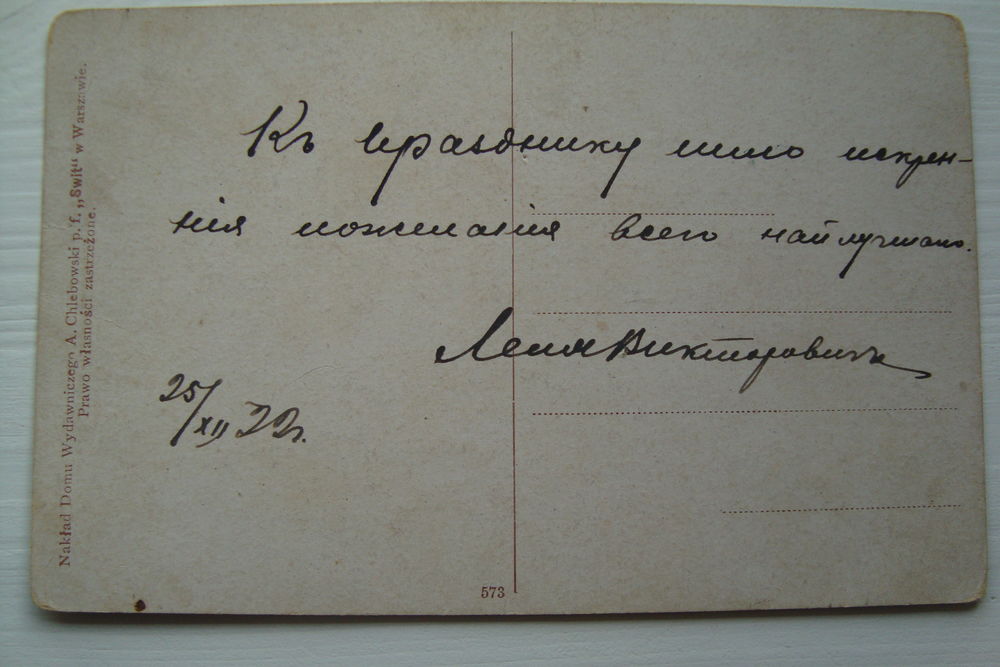 Къ празднику шлю искрен-
нія пожеланія всего найлучшаго.
Леня Викторовичъ
25/XII 22г.
Nakład Domu Wydawniczego A. Chlebowski p. f. „Świt" w Warszawie.
Prawo własności zastrzeżone.
573